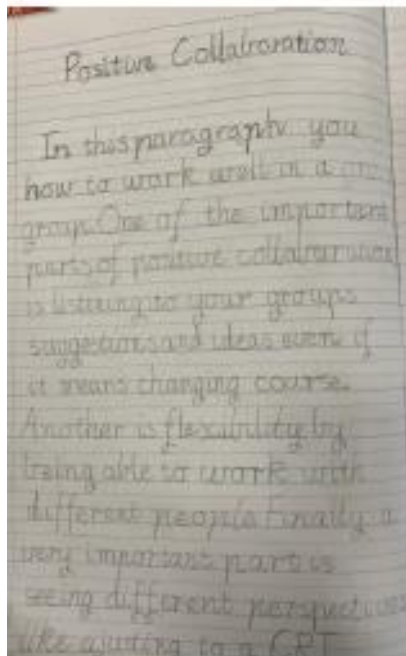 Positive Collaboration
In this paragraph you
how to work well in a
group. One of the important
parts of positive
is listening to your groups
suggestions and ideas even if
it means changing course.
Another is flexibility by
being able to work with
different people Finally a
very important part is
seeing different perspectives
like to a CRT